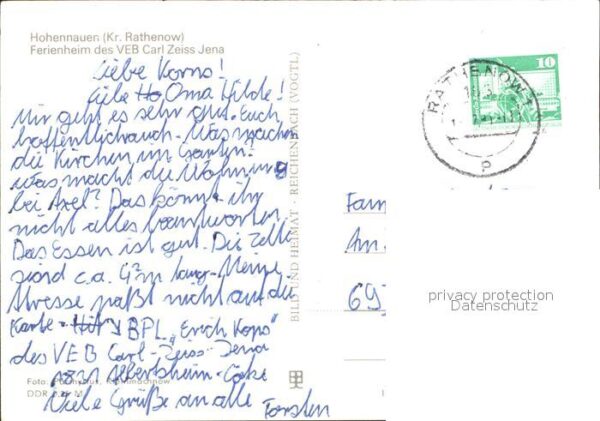 Hohennauen (Kr. Rathenow)
Ferienheim des VEB Carl Zeiss Jena
Liebe
Oma Hilde!
Mir geht es sehr gut. Euch
hoffentlich auch. Was machen
die Kirschen im Garten?
Was macht die Wohnung
bei Axel? Das könnt ihr
nicht alles beantworten.
Das Essen ist gut. Die Zelte
sind c.a. lang. Meine
Adresse paßt nicht auf die
Karte. BPL „Erich
des VEB Carl-Zeiss-Jena
Viele Grüße an alle Torsten
Foto:
DDR M
BILD UND HEIMAT · REICHENBACH (VOGTL)
RATHENOW 1
P
10
Fam
Am
69
privacy protection
Datenschutz